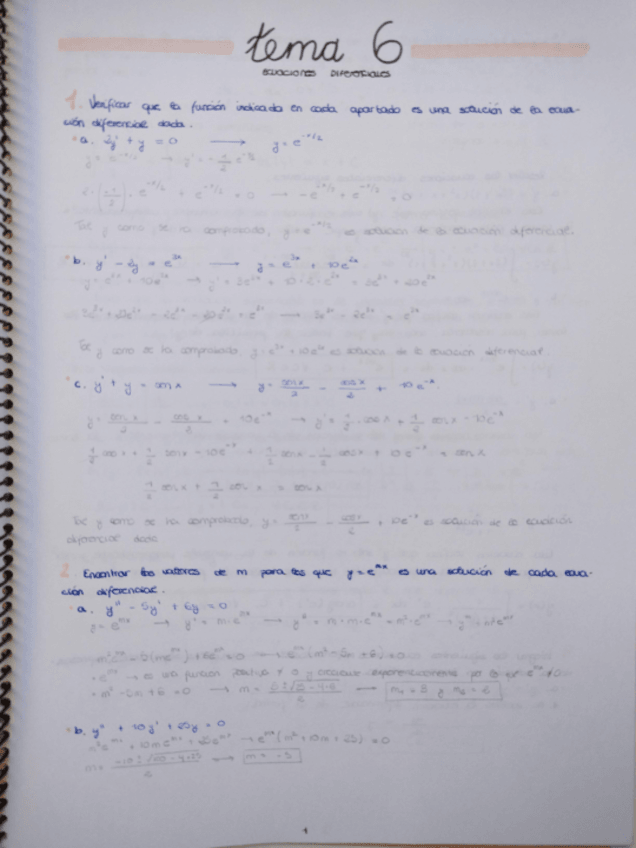 tema 6
ECUACIONES DIFERENCIALES
1. Verificar que la función indicada en cada apartado es una solución de la ecua-
ción diferencial dada.
a. 2y' + y = 0 → y = e^{-x/2}
y = e^{-x/2} → y' = -1/2 e^{-x/2}
e^{-x/2} + e^{-x/2} = 0 → -e^{-x/2} + e^{-x/2} = 0
Tal y como se ha comprobado, y = e^{-x/2} es solución de la ecuación diferencial.
b. y' - 2y = e^{3x} → y = e^{3x} + 10e^{2x}
y = e^{3x} + 10e^{2x} → y' = 3e^{3x} + 10·2·e^{2x} = 3e^{3x} + 20e^{2x}
3e^{3x} + 20e^{2x} - 2e^{3x} - 20e^{2x} = e^{3x} → 3e^{3x} - 2e^{3x} = e^{3x}
Tal y como se ha comprobado, y = e^{3x} + 10e^{2x} es solución de la ecuación diferencial.
c. y' + y = sen x → y = sen x/2 - cos x/2 + 10e^{-x}
y = sen x/2 - cos x/2 + 10e^{-x} → y' = 1/2 cos x + 1/2 sen x - 10e^{-x}
1/2 cos x + 1/2 sen x - 10e^{-x} + 1/2 sen x - 1/2 cos x + 10e^{-x} = sen x
1/2 sen x + 1/2 sen x = sen x
Tal y como se ha comprobado, y = sen x/2 - cos x/2 + 10e^{-x} es solución de la ecuación
diferencial dada
2. Encontrar los valores de m para los que y = e^{mx} es una solución de cada ecua-
ción diferencial.
a. y'' - 5y' + 6y = 0
y = e^{mx} → y' = m·e^{mx} → y'' = m·m·e^{mx} = m²·e^{mx}
m²e^{mx} - 5(me^{mx}) + 6e^{mx} = 0 → e^{mx}(m² - 5m + 6) = 0
e^{mx} → es una función positiva
m² - 5m + 6 = 0 → m =
b. y'' + 10y' + 25y = 0
m²e^{mx} + 10me^{mx} + 25e^{mx} → e^{mx}(m² + 10m + 25) = 0
m = -10 ± √100 - 4·25 / 2 → m = -5
1